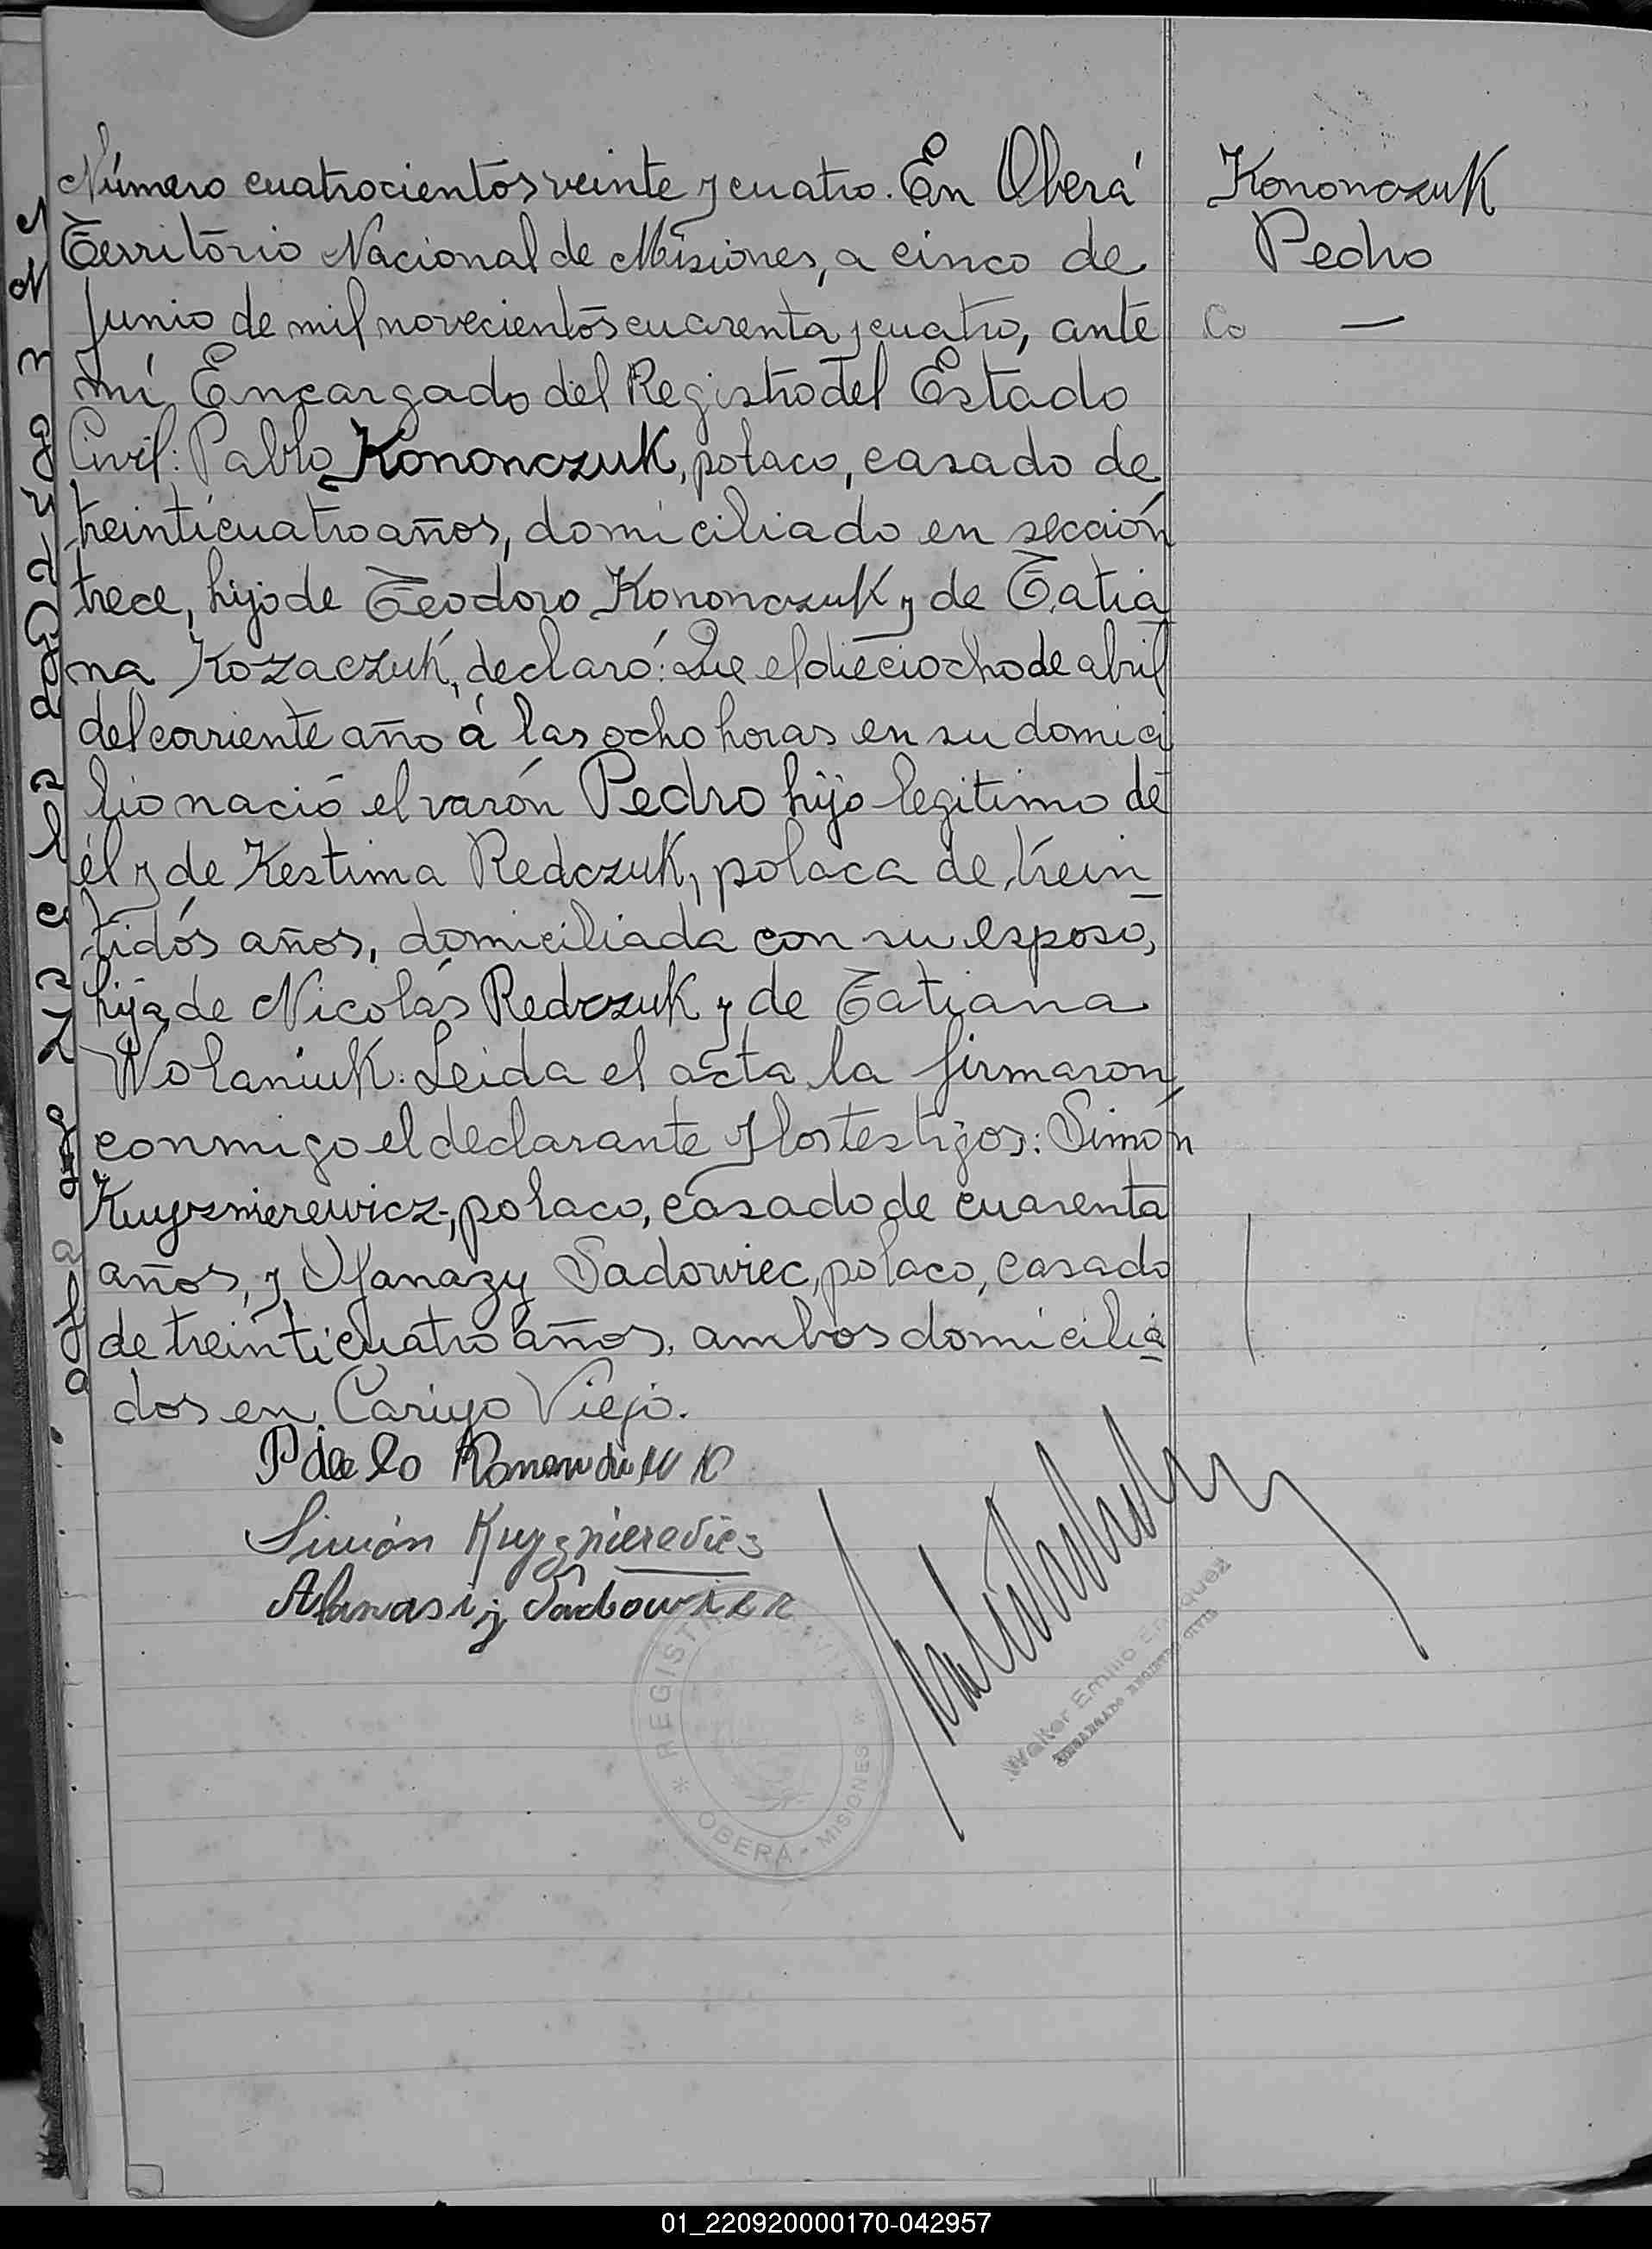 Número cuatrocientos veinte y cuatro. En Oberá
Territorio Nacional de Misiones, a cinco de
junio de mil novecientos cuarenta y cuatro, ante
mí Encargado del Registro del Estado
Civil: Pablo Kononczuk, polaco, casado de
treinticuatro años, domiciliado en sección
trece, hijo de Teodoro Kononczuk y de Tatia
na Kozaczuk, declaró: Que el dieciocho de abril
del corriente año á las ocho horas en su domici
lio nació el varón Pedro hijo legitimo de
él y de Kestima Redczuk, polaca de trein_
tidós años, domiciliada con su esposo,
hija de Nicolás Redczuk y de Tatiana
Wolaniuk. Leida el acta la firmaron
conmigo el declarante y los testigos: Simón
Kuyznierewicz, polaco, casado de cuarenta
años, y Ofanazy Sadowiec, polaco, casado
de treinticuatro años, ambos domicilia
dos en Cariyo Viejo.
Kononczuk
Pedro
Co —
Simón Kuyznierevicz
Afanasij Sadowiec
REGISTRO CIVIL
OBERÁ - MISIONES
Walter Emilio Enriquez
ENCARGADO REGISTRO CIVIL
01_220920000170-042957